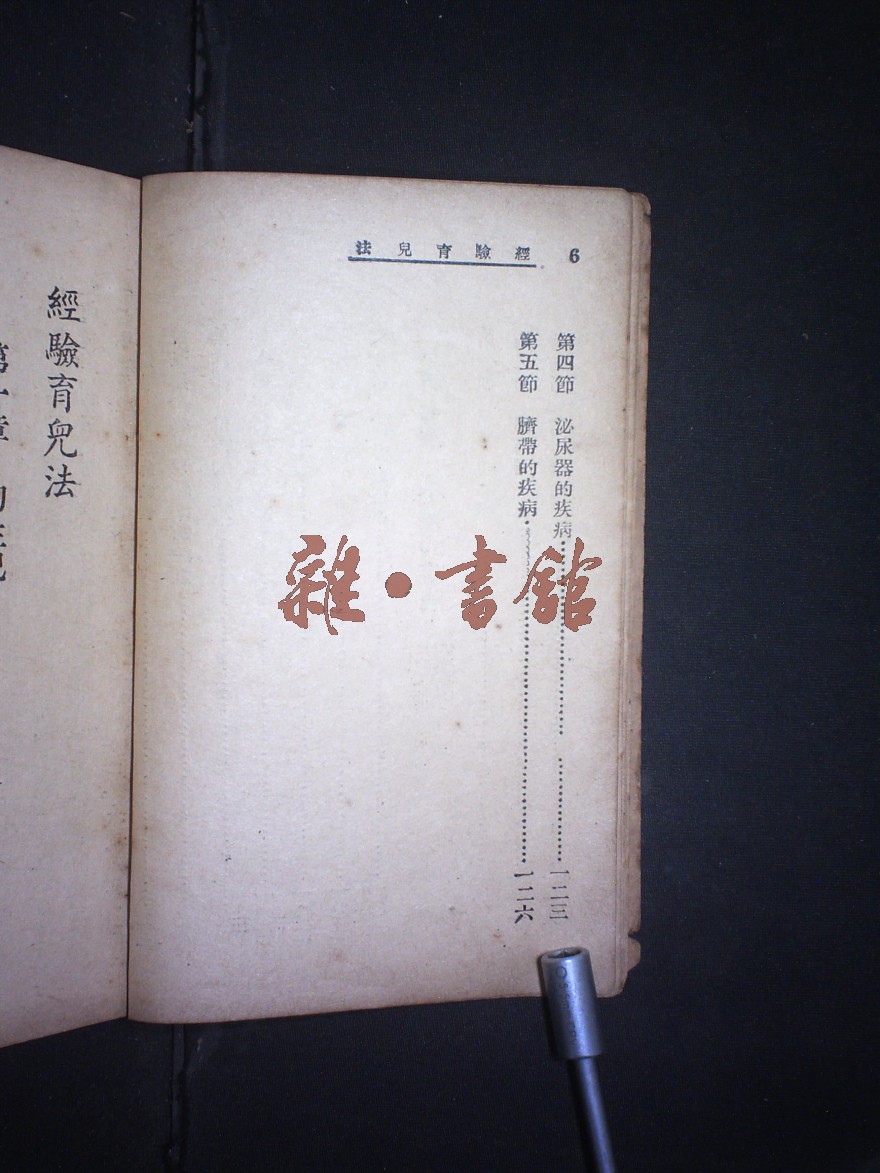 6 經驗育兒法
第四節 泌尿器的疾病⋯⋯⋯⋯⋯⋯⋯⋯一二三
第五節 臍帶的疾病⋯⋯⋯⋯⋯⋯⋯⋯一二六
經驗育兒法
雜·書館